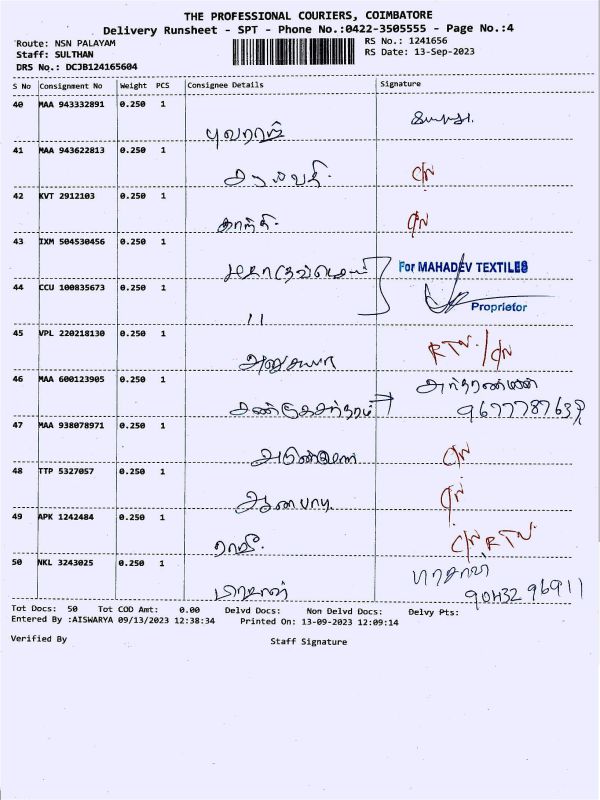 THE PROFESSIONAL COURIERS, COIMBATORE
Delivery Runsheet - SPT - Phone No.:0422-3505555 - Page No.:4
Route: NSN PALAYAM
Staff: SULTHAN
DRS No.: DCJB124165604
RS No.: 1241656
RS Date: 13-Sep-2023
S No Consignment No Weight PCS Consignee Details Signature
40 MAA 943332891 0.250 1
யுவராஜ்
41 MAA 943622813 0.250 1
C/N
42 KVT 2912103 0.250 1
காந்தி. C/N
43 IXM 504530456 0.250 1
For MAHADEV TEXTILES
44 CCU 100835673 0.250 1
Proprietor
11
45 VPL 220218130 0.250 1
அனுசுயா RTN. / C/N
46 MAA 600123905 0.250 1
47 MAA 938078971 0.250 1
C/N
48 TTP 5327057 0.250 1
C/N
49 APK 1242484 0.250 1
C/N RTN.
50 NKL 3243025 0.250 1
90432 96911
Tot Docs: 50 Tot COD Amt: 0.00 Delvd Docs: Non Delvd Docs: Delvy Pts:
Entered By :AISWARYA 09/13/2023 12:38:34 Printed On: 13-09-2023 12:09:14
Verified By Staff Signature